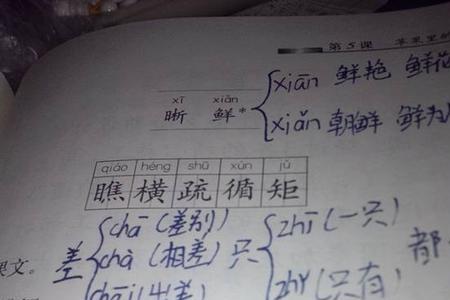 第5课 苹果里的
xī xiān
晰 鲜*
xiān 鲜艳 鲜花
xiǎn 朝鲜 鲜为
qiáo héng shū xún jǔ
瞧 横 疏 循 矩
课文。
差 chā (差别)
chà (相差)
chāi (出差)
只 zhī (一只)
zhǐ (只有)
都